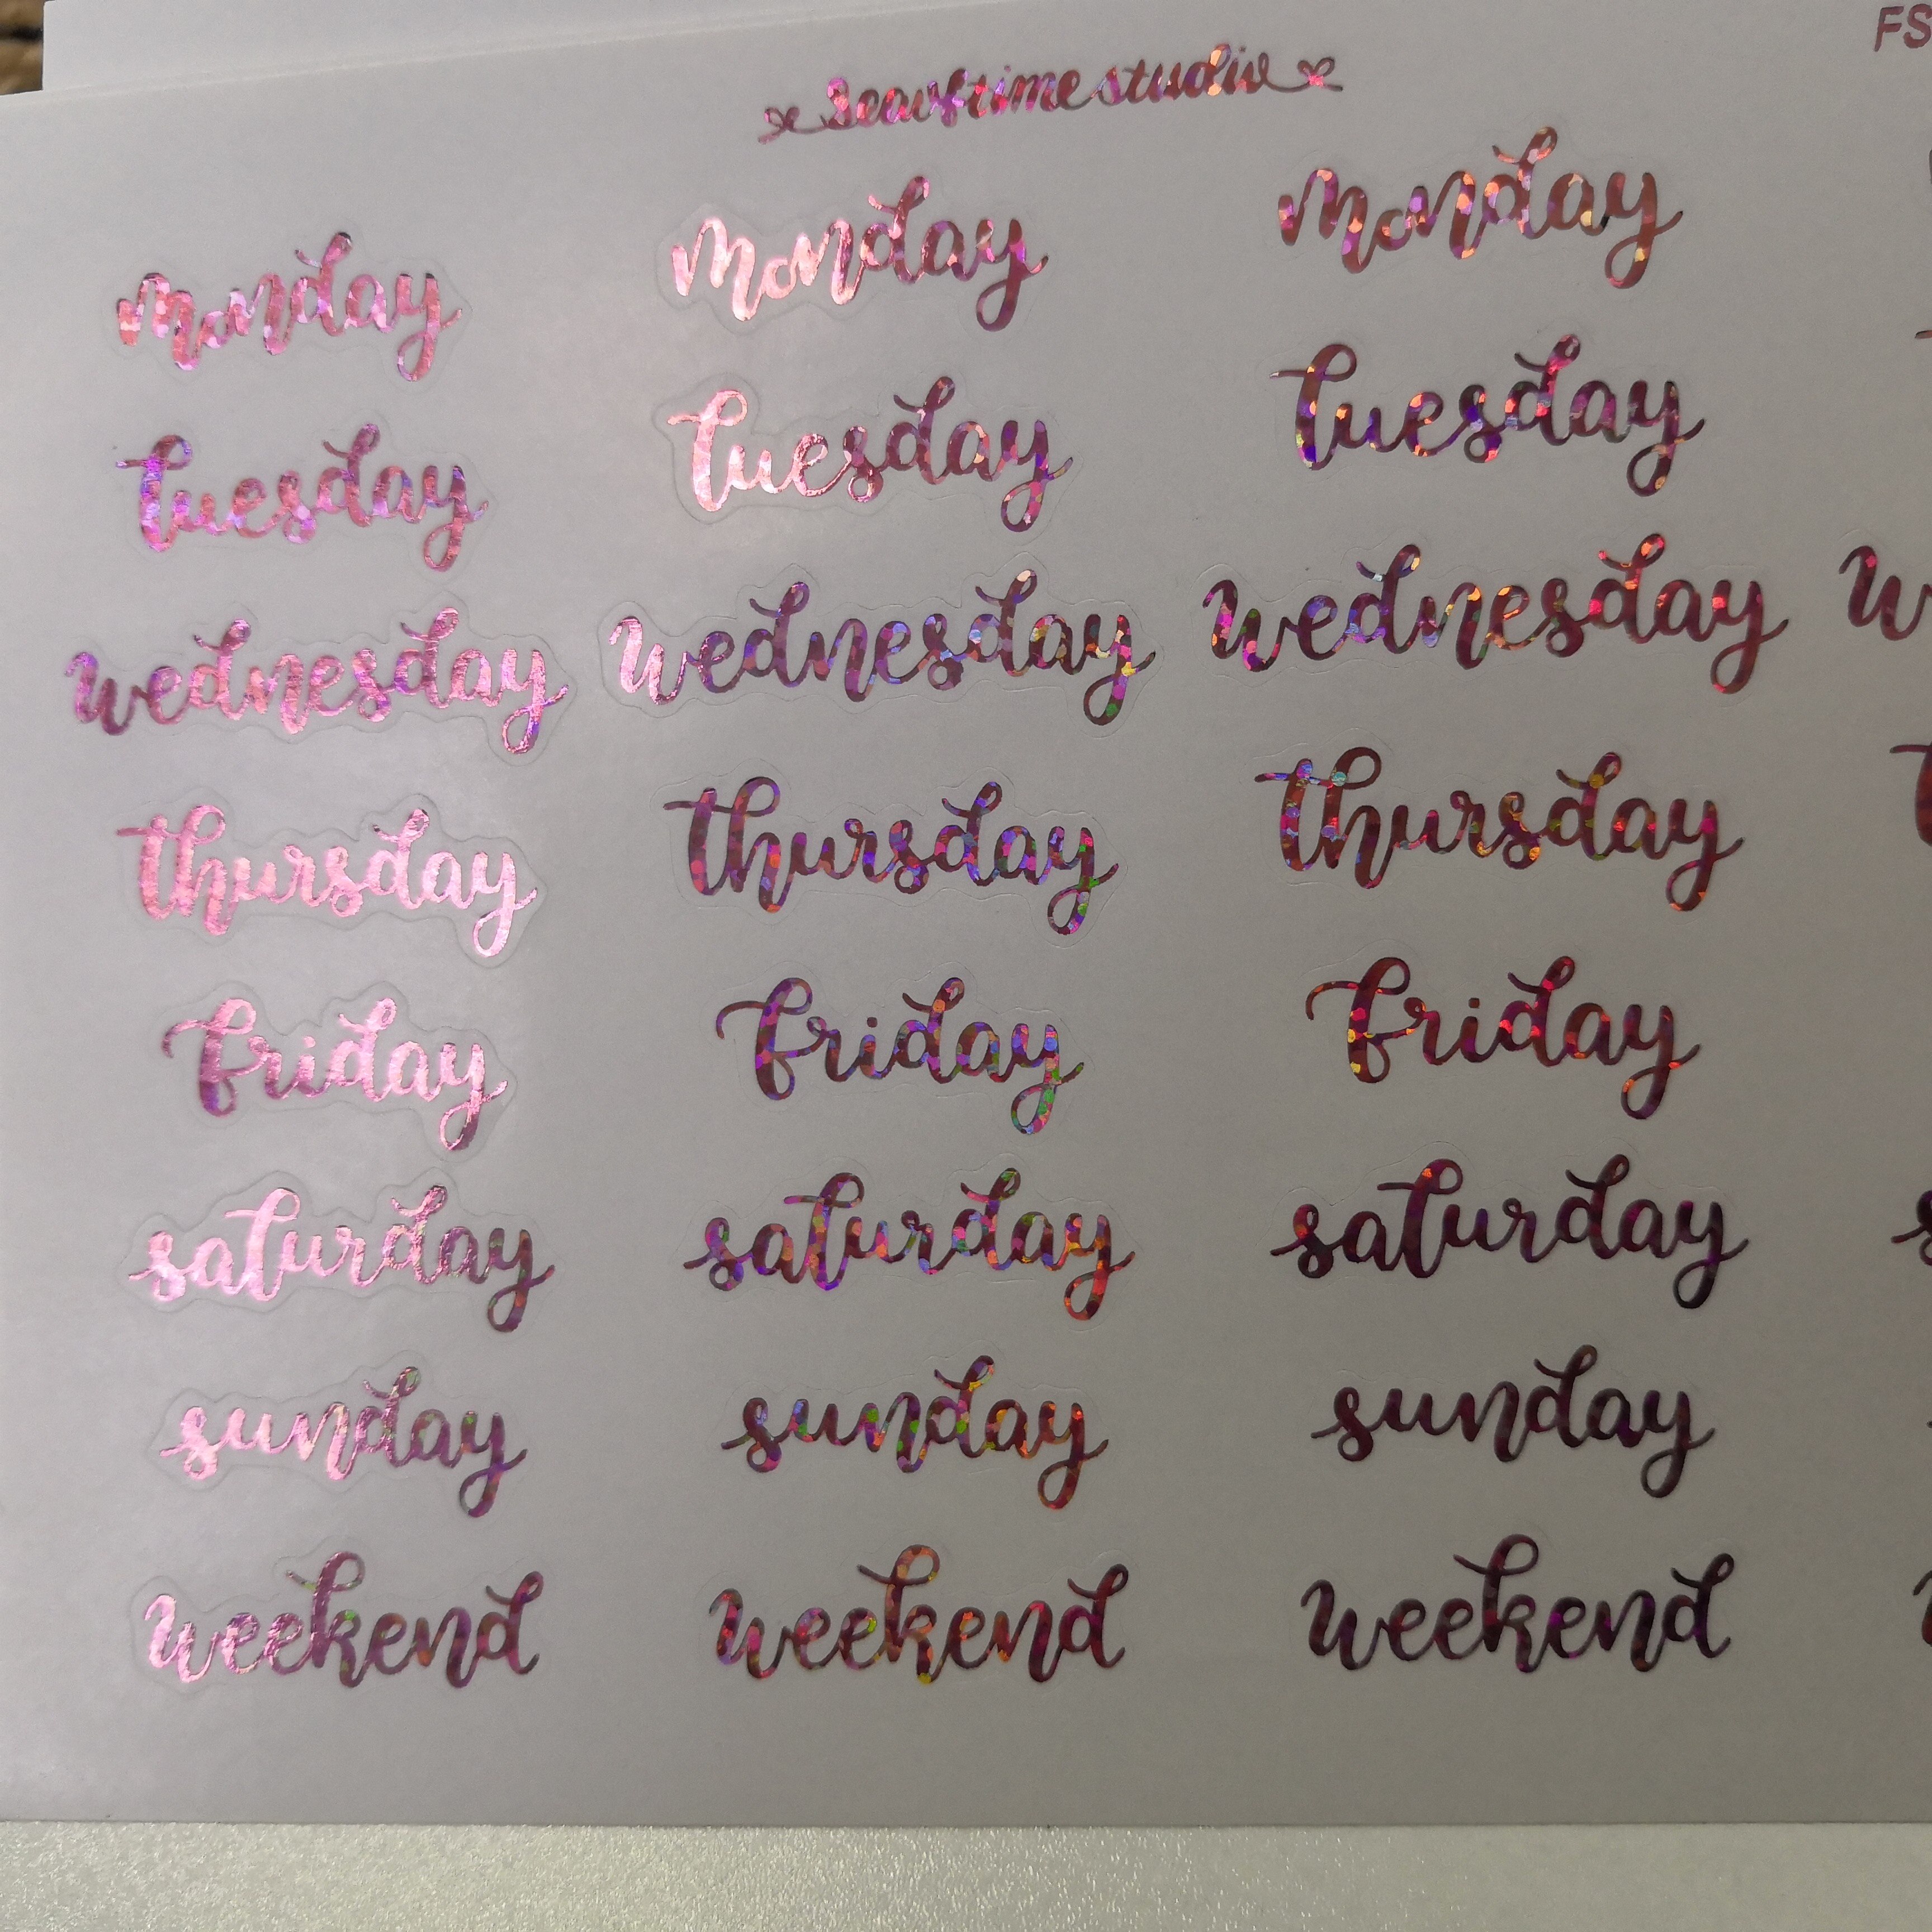 FS
studio
monday monday monday
tuesday tuesday tuesday
wednesday wednesday wednesday w
thursday thursday thursday
friday friday friday
saturday saturday saturday s
sunday sunday sunday
weekend weekend weekend